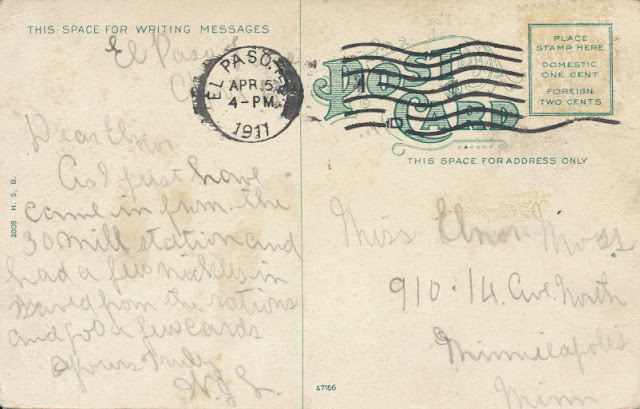 THIS SPACE FOR WRITING MESSAGES
El Paso
EL PASO, TEX.
APR. 5
4-PM
1911
Dear Elnor
As I just have
came in from the
30 mill station and
had a few nickles in
saved from the rations
and got a few cards
yours truly
2008 H. S. B.
POST
CARD
PLACE
STAMP HERE
DOMESTIC
ONE CENT
FOREIGN
TWO CENTS
THIS SPACE FOR ADDRESS ONLY
Miss Elnor Moss
910. 14. Ave. North
Minneapolis
Minn
A7166